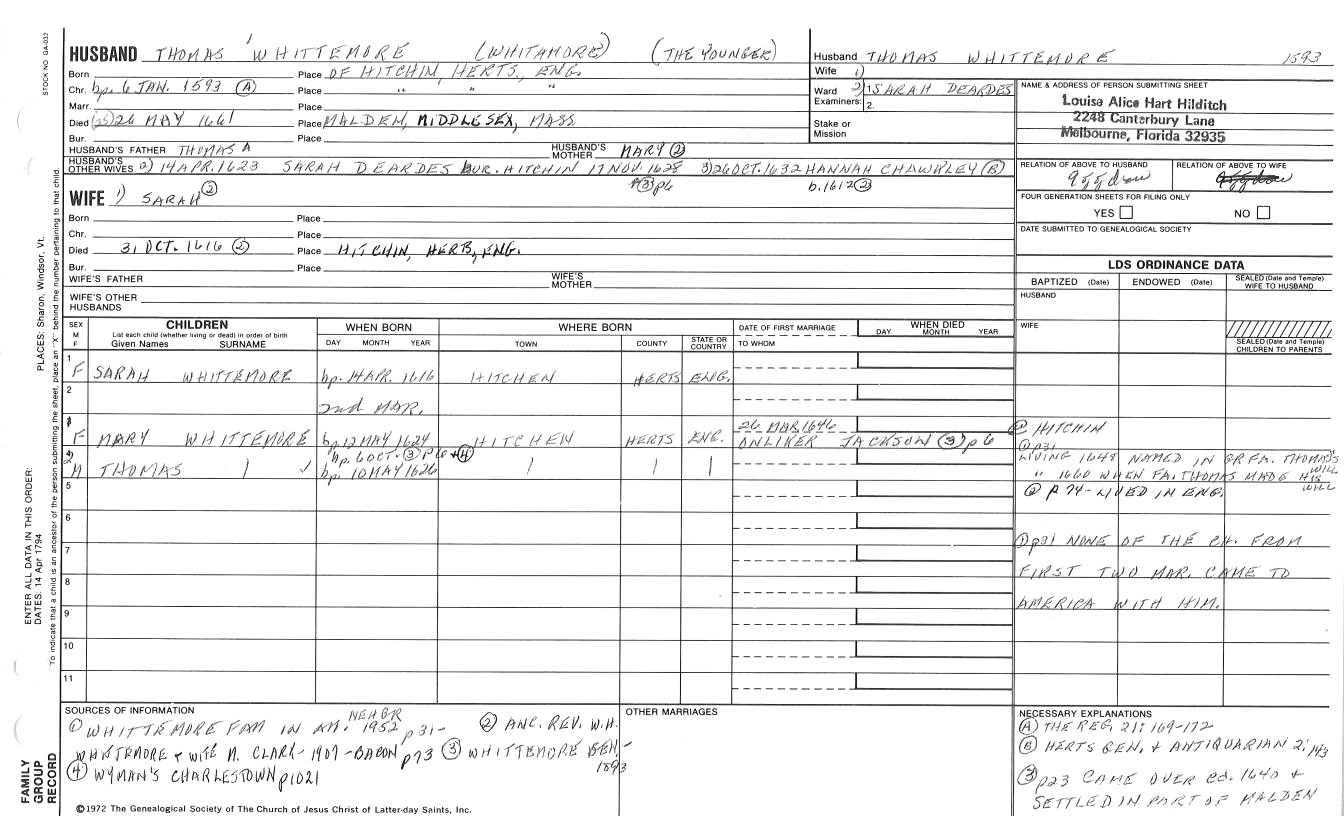 STOCK NO. GA-032
HUSBAND THOMAS 1 WHITTEMORE (WHITAMORE) (THE YOUNGER)
Born Place OF HITCHIN, HERTS., ENG.
Chr. bp. 6 JAN. 1593 (A) Place " " "
Marr. Place
Died (25) 26 MAY 1661 Place MALDEN, MIDDLESEX, MASS
Bur. Place
HUSBAND'S FATHER THOMAS A HUSBAND'S MOTHER MARY (2)
HUSBAND'S OTHER WIVES 2) 14 APR. 1623 SARAH DEARDES BUR. HITCHIN 17 NOV. 1628 3) 26 OCT. 1632 HANNAH CHAWKLEY (B)
(3) p6 b. 1612 (2)
WIFE 1) SARAH (2)
Born Place
Chr. Place
Died 31 OCT. 1616 (2) Place HITCHIN, HERB, ENG.
Bur. Place
WIFE'S FATHER WIFE'S MOTHER
WIFE'S OTHER HUSBANDS
Husband THOMAS WHITTEMORE 1593
Wife 1)
Ward 2) SARAH DEARDES
Examiners: 1. 2.
Stake or Mission
NAME & ADDRESS OF PERSON SUBMITTING SHEET
Louise Alice Hart Hilditch
2248 Canterbury Lane
Melbourne, Florida 32935
RELATION OF ABOVE TO HUSBAND RELATION OF ABOVE TO WIFE
FOUR GENERATION SHEETS FOR FILING ONLY
YES NO
DATE SUBMITTED TO GENEALOGICAL SOCIETY
LDS ORDINANCE DATA
BAPTIZED (Date) ENDOWED (Date) SEALED (Date and Temple) WIFE TO HUSBAND
HUSBAND
WIFE
SEALED (Date and Temple) CHILDREN TO PARENTS
SEX M F
CHILDREN
List each child (whether living or dead) in order of birth
Given Names SURNAME
WHEN BORN
DAY MONTH YEAR
WHERE BORN
TOWN COUNTY STATE OR COUNTRY
DATE OF FIRST MARRIAGE
TO WHOM
WHEN DIED
DAY MONTH YEAR
1 F SARAH WHITTEMORE bp. 14 APR. 1616 HITCHEN HERTS ENG.
2 2nd MAR.
F MARY WHITTEMORE bp. 12 MAY 1624 HITCHEN HERTS ENG. 26 MAR 1646
ONLIKER JACKSON (3) p 6
bp. 6 OCT. (3) p6 + (4)
M THOMAS bp. 10 MAY 1626
5
6
7
8
9
10
11
(2) HITCHIN
(1) p31
LIVING 1648 NAMED IN GR FA. THOMAS'S WILL
" 1660 WHEN FA. THOMAS MADE HIS WILL
(2) p 74 - LIVED IN ENG.
(1) p31 NONE OF THE CH. FROM
FIRST TWO MAR. CAME TO
AMERICA WITH HIM.
SOURCES OF INFORMATION
(1) WHITTEMORE FAM IN AM. NEHGR 1952 p 31-
(2) ANC. REV. W.H.
WHITTEMORE + WIFE M. CLARK - 1907 - BACON p73
(3) WHITTEMORE GEN - 1893
(4) WYMAN'S CHARLESTOWN p1021
OTHER MARRIAGES
NECESSARY EXPLANATIONS
(A) THE REG. 21: 169-172
(B) HERTS GEN. & ANTIQUARIAN 2: 143
(3) p23 CAME OVER Cd. 1640 +
SETTLED IN PART OF MALDEN
©1972 The Genealogical Society of The Church of Jesus Christ of Latter-day Saints, Inc.
FAMILY GROUP RECORD
ENTER ALL DATA IN THIS ORDER:
DATES: 14 Apr 1794
PLACES: Sharon, Windsor, Vt.
To indicate that a child is an ancestor of the person submitting the sheet, place an "X" behind the number pertaining to that child.